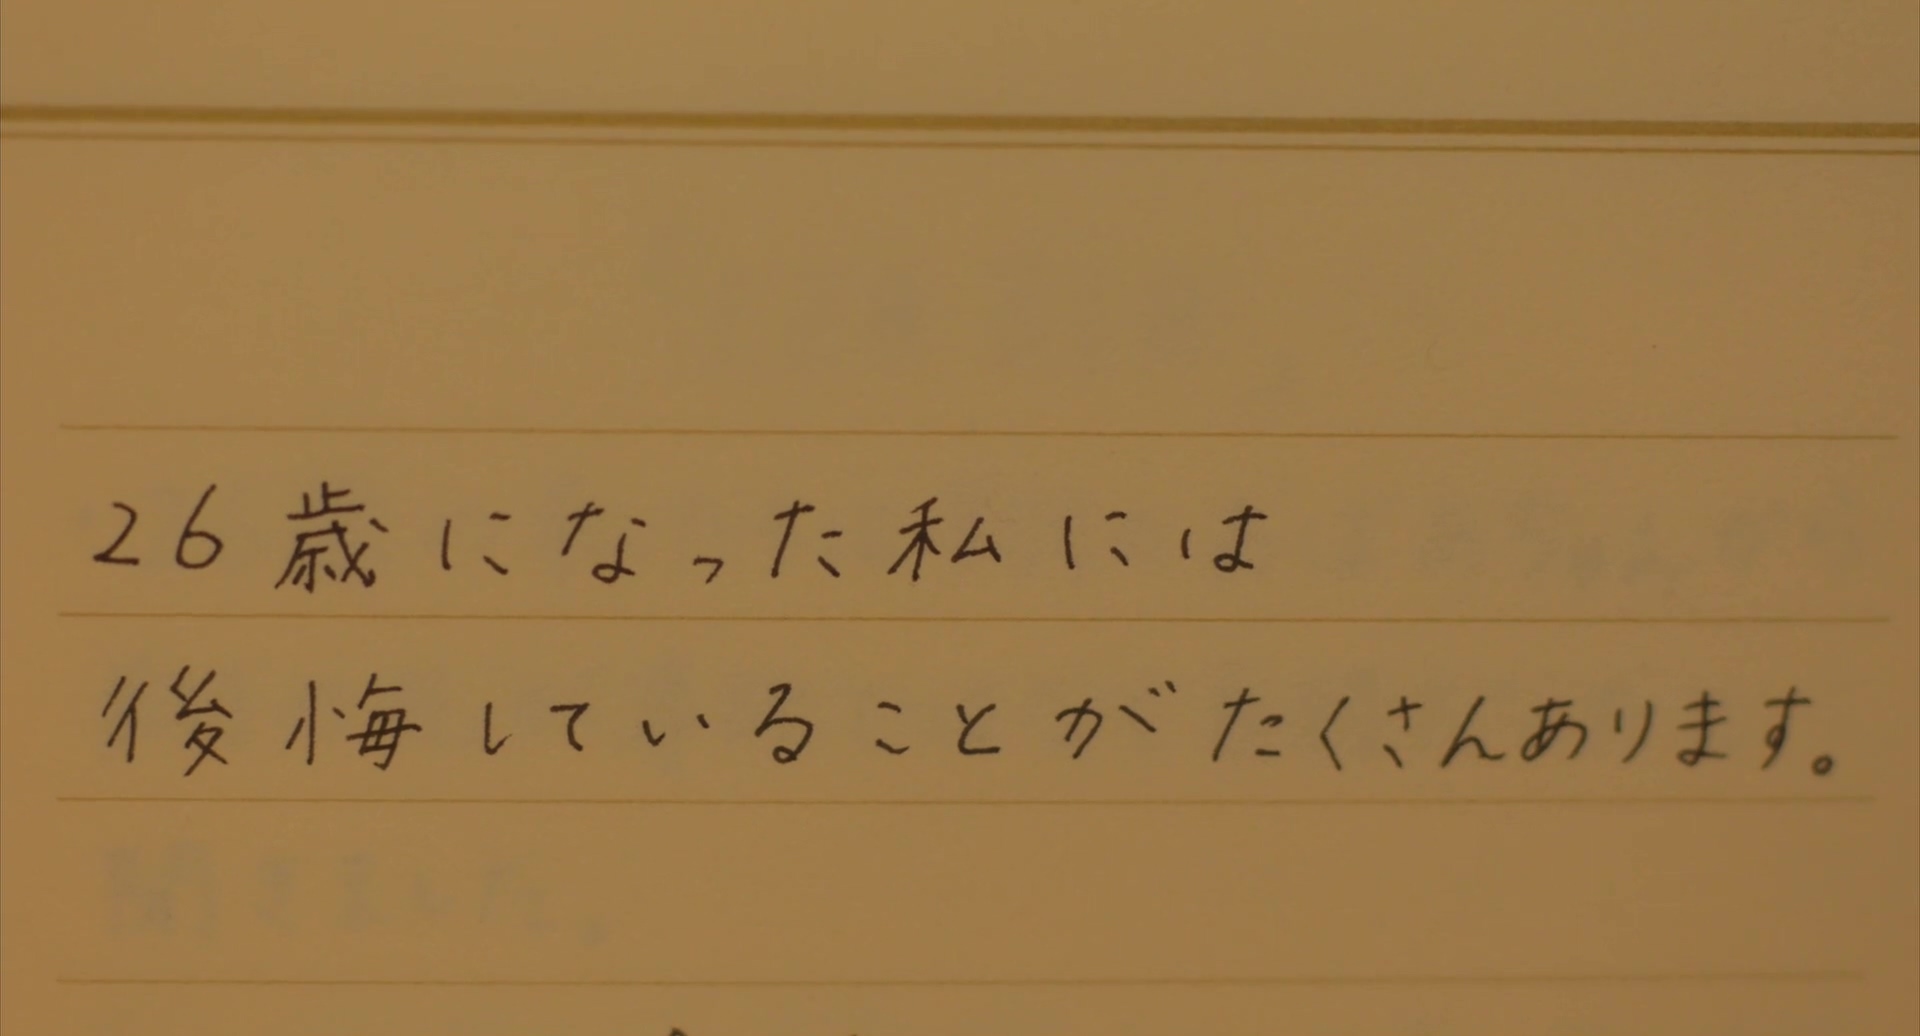 26歳になった私には
後悔していることがたくさんあります。